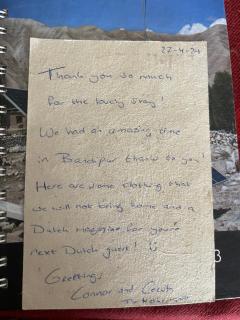 22-4-24
Thank you so much
for the lovely stay!
We had an amazing time
in Bandipur thanks to you!
Here are some clothing that
we will not bring home and a
Dutch magazine for you're
next Dutch guest!
Greetings,
Connor and
The Netherlands